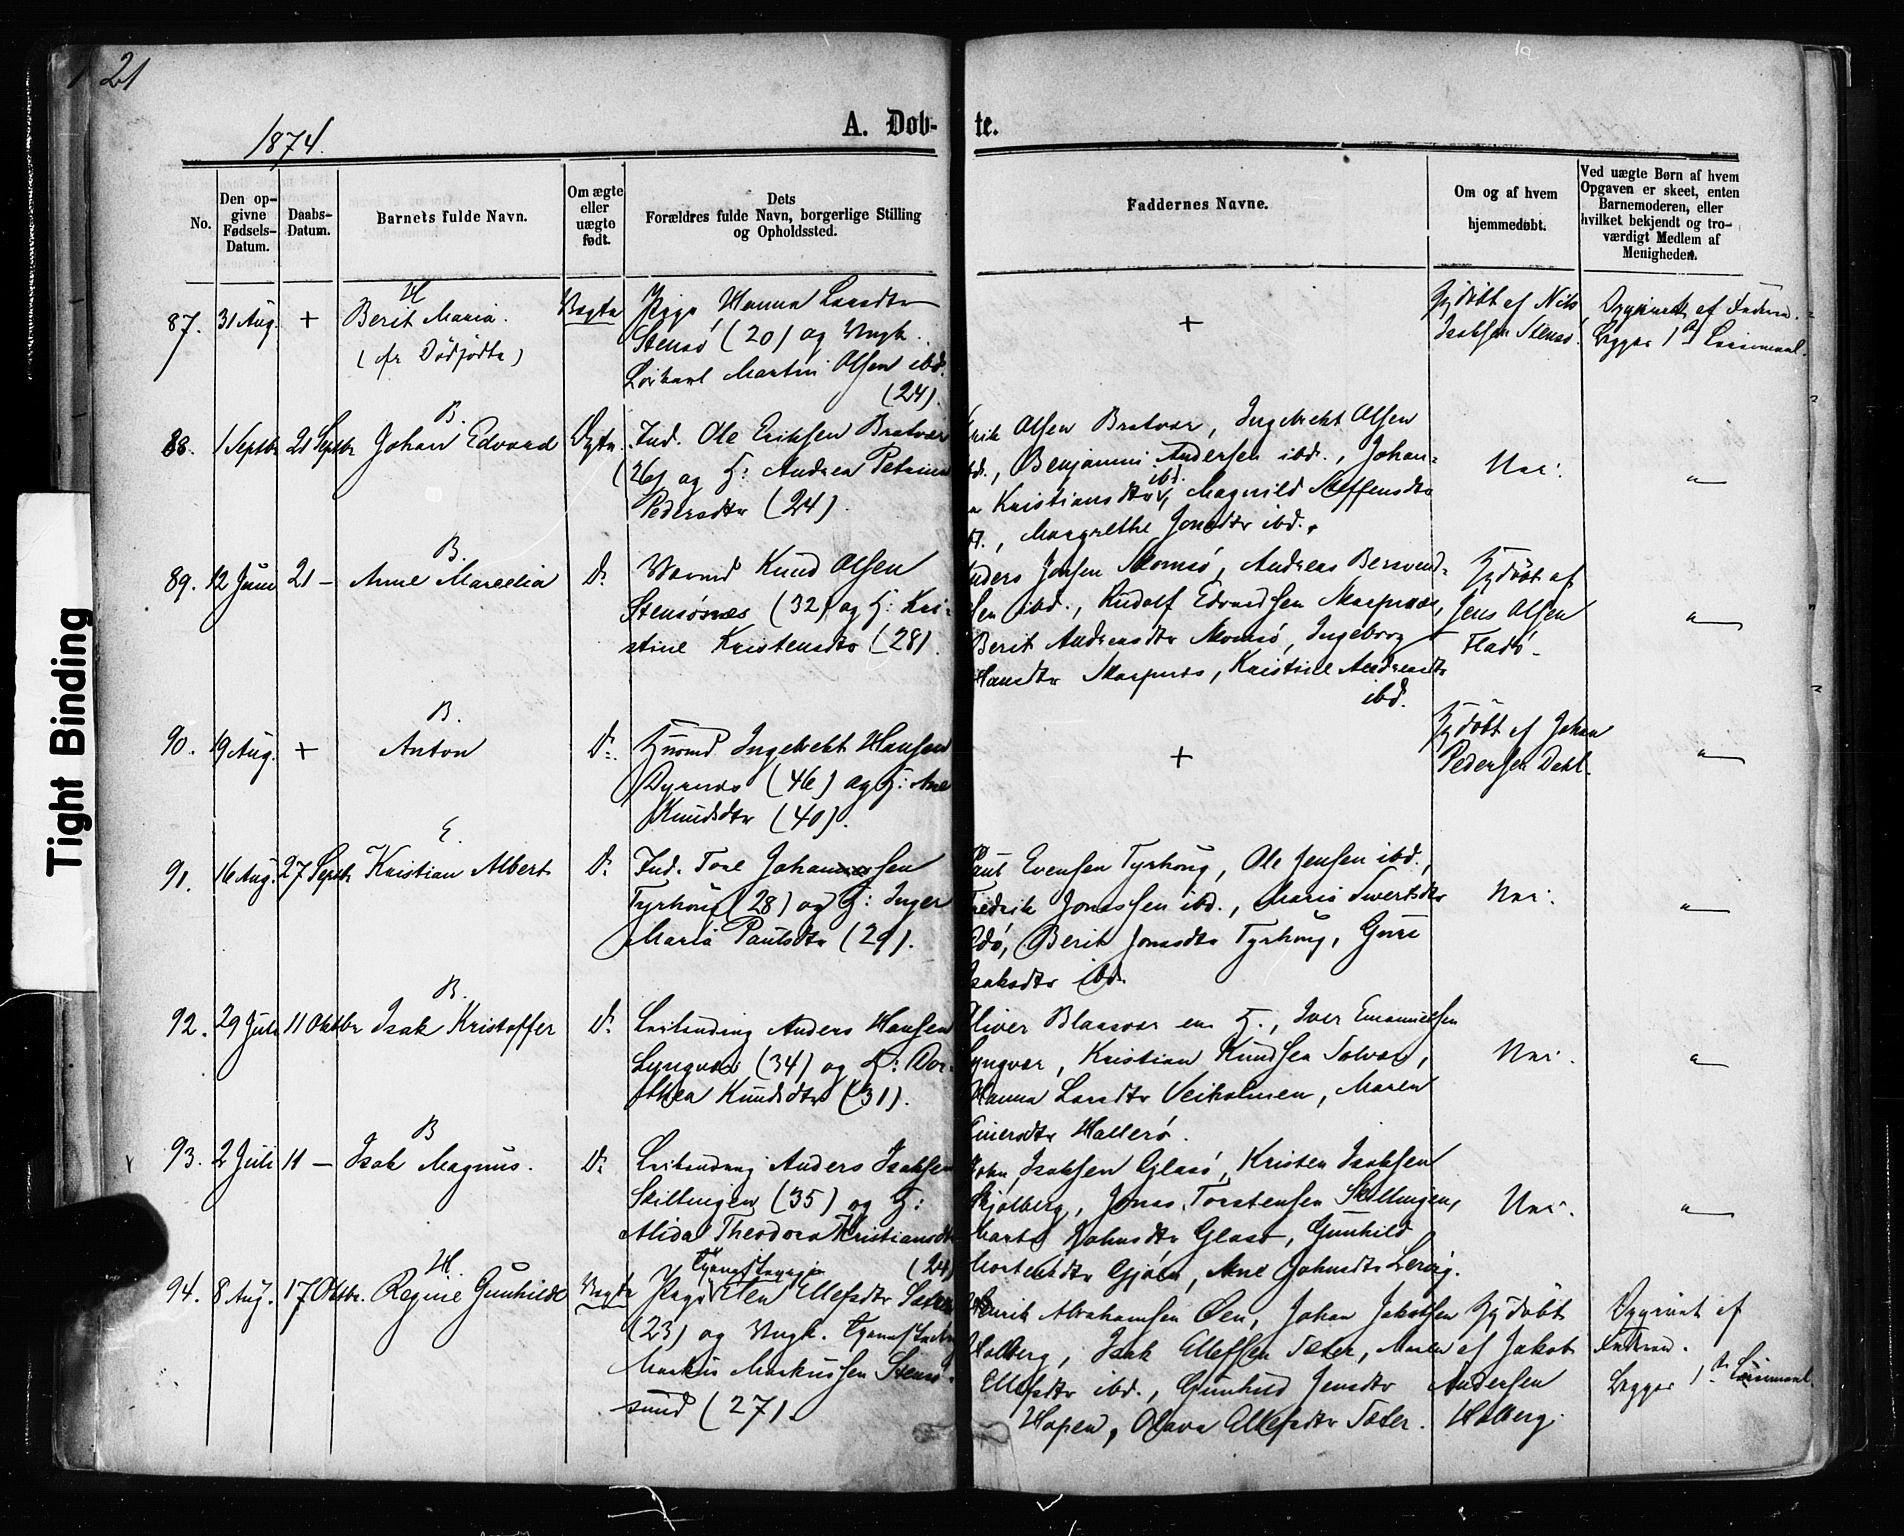 21
1874.
A. Døb- te.
No.
Den op-
givne
Fødsels-
Datum.
Daabs-
Datum.
Barnets fulde Navn.
Om ægte
eller
uægte
født.
Dets
Forældres fulde Navn, borgerlige Stilling
og Opholdssted.
Faddernes Navne.
Om og af hvem
hjemmedøbt.
Ved uægte Børn af hvem
Opgaven er skeet, enten
Barnemoderen, eller
hvilket bekjendt og tro-
værdigt Medlem af
Menigheden.
87. 31 Aug. + H
Berit Maria.
(er Dödfödte)
Uægte
Pige Hanna Larsdtr
Stensö (20) og Ungk.
Martin Olsen ibd.
(24).
+
Hjdöbt af Nils
Isaksen Stensö.
Opgivet af Faderen.
Begges 1ste Leiermaal.
88. 1 Septbr 21 Septbr
B.
Johan Edvard
Ægte.
Ind. Ole Eriksen Bratvær
(26) og H: Andrea Petrine
Pedersdtr (24).
Erik Olsen Bratvær, Ingebrekt Olsen
ibd., Benjamin Andersen ibd., Johan-
na Kristiansdtr ibd., Magnild Steffensdtr
, Margrethe Jonsdtr ibd.
Nei.
"
89. 12 Juni 21 —
B.
Anne Marselia
Do
Knud Olsen
Stensönes (32) og H: Kri-
stine Kristensdtr (28).
Anders Jonsen Momsö, Andreas Bersvend-
sen ibd., Rudolf Edvardsen Marpnæs,
Berit Andreasdtr Momsö, Ingeborg
Hansdtr Marpnæs, Kristine Andreasdtr
ibd.
Hjdöbt af
Jens Olsen
Fladö.
"
90. 19 Aug. +
B.
Anton
Do
Husmd. Ingebrekt Hansen
Dyrnæs (46) og H: Ane
Knudsdtr (40).
+
Hjdöbt af Johan
Pedersen Dahl.
"
91. 16 Aug. 27 Septbr
E.
Kristian Albert
Do
Ind. Tore Johannessen
Tyrhoug (28) og H: Inger
Maria Paulsdtr (29).
Paul Evensen Tyrhoug, Ole Jensen ibd.,
Fredrik Jonassen ibd., Maria Sivertsdtr
Edö, Berit Jonasdtr Tyrhoug, Guri
Isaksdtr ibd.
Nei.
"
92. 29 Juli 11 Oktbr
B.
Isak Kristoffer
Do
Anders Hansen
Lyngvær (34) og H: Dor-
thea Knudsdtr (31).
Oliver Blaasvær en H., Iver Emanuelsen
Lyngvær, Kristian Knudsen Solvær,
Hanna Larsdtr Veiholmen, Maren
Einersdtr Hallerö.
Nei.
"
93. 2 Juli 11 —
B
Isak Magnus.
Do
Anders Isaksen
Skillingen (35) og H:
Alida Theodora Kristiansdtr
(24)
John Isaksen Glasö, Kristen Isaksen
Skjølberg, Jonas Torstensen Skillingen,
Marta Johnsdtr Glasö, Gunhild
Mortensdtr Gjöen, Ane Johnsdtr Lervig.
Nei.
"
94. 8 Aug. 17 Oktbr.
H.
Regine Gunhilde
Uægte
Pige Elen Ellefsdtr
(23) og Ungk.
Markus Markussen Stensö-
sund (27).
Henrik Abrahamsen Öen, Johan Jakobsen
Holberg, Isak Ellefsen Sæter, Maren
Ellefsdtr ibd., Gunhild Jensdtr
Hopen, Olava Ellefsdtr Sæter.
Hjdöbt
af Jakob
Andersen
Holberg.
Opgivet af
Faderen.
Begges 1ste Leiermaal.
Tight Binding